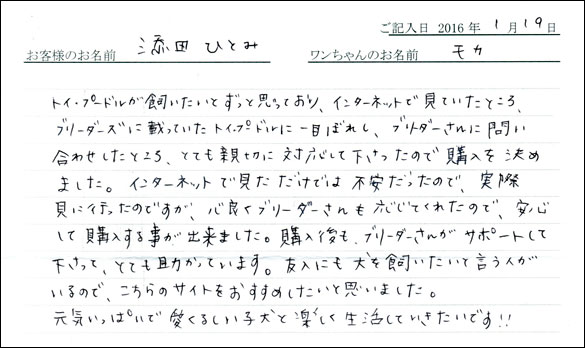 ご記入日 2016 年 1 月 19 日
お客様のお名前 添田 ひとみ ワンちゃんのお名前 モカ
トイ・プードルが飼いたいとずっと思っており、インターネットで見ていたところ、
ブリーダーズに載っていたトイ・プードルに一目ぼれし、ブリーダーさんに問い
合わせしたところ、とても親切に対応して下さったので購入を決め
ました。インターネットで見ただけでは不安だったので、実際
見に行ったのですが、心良くブリーダーさんも応じてくれたので、安心
して購入する事が出来ました。購入後も、ブリーダーさんがサポートして
下さって、とても助かっています。友人にも犬を飼いたいと言う人が
いるので、こちらのサイトをおすすめしたいと思いました。
元気いっぱいで愛くるしい子犬と楽しく生活していきたいです!!